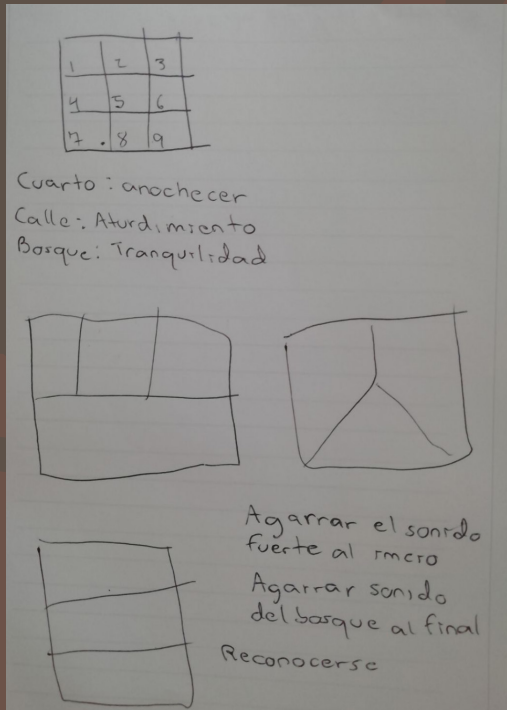 1 2 3
4 5 6
7 . 8 9
Cuarto: anochecer
Calle: Aturdimiento
Bosque: Tranquilidad
Agarrar el sonido
fuerte al
Agarrar sonido
del bosque al final
Reconocerse